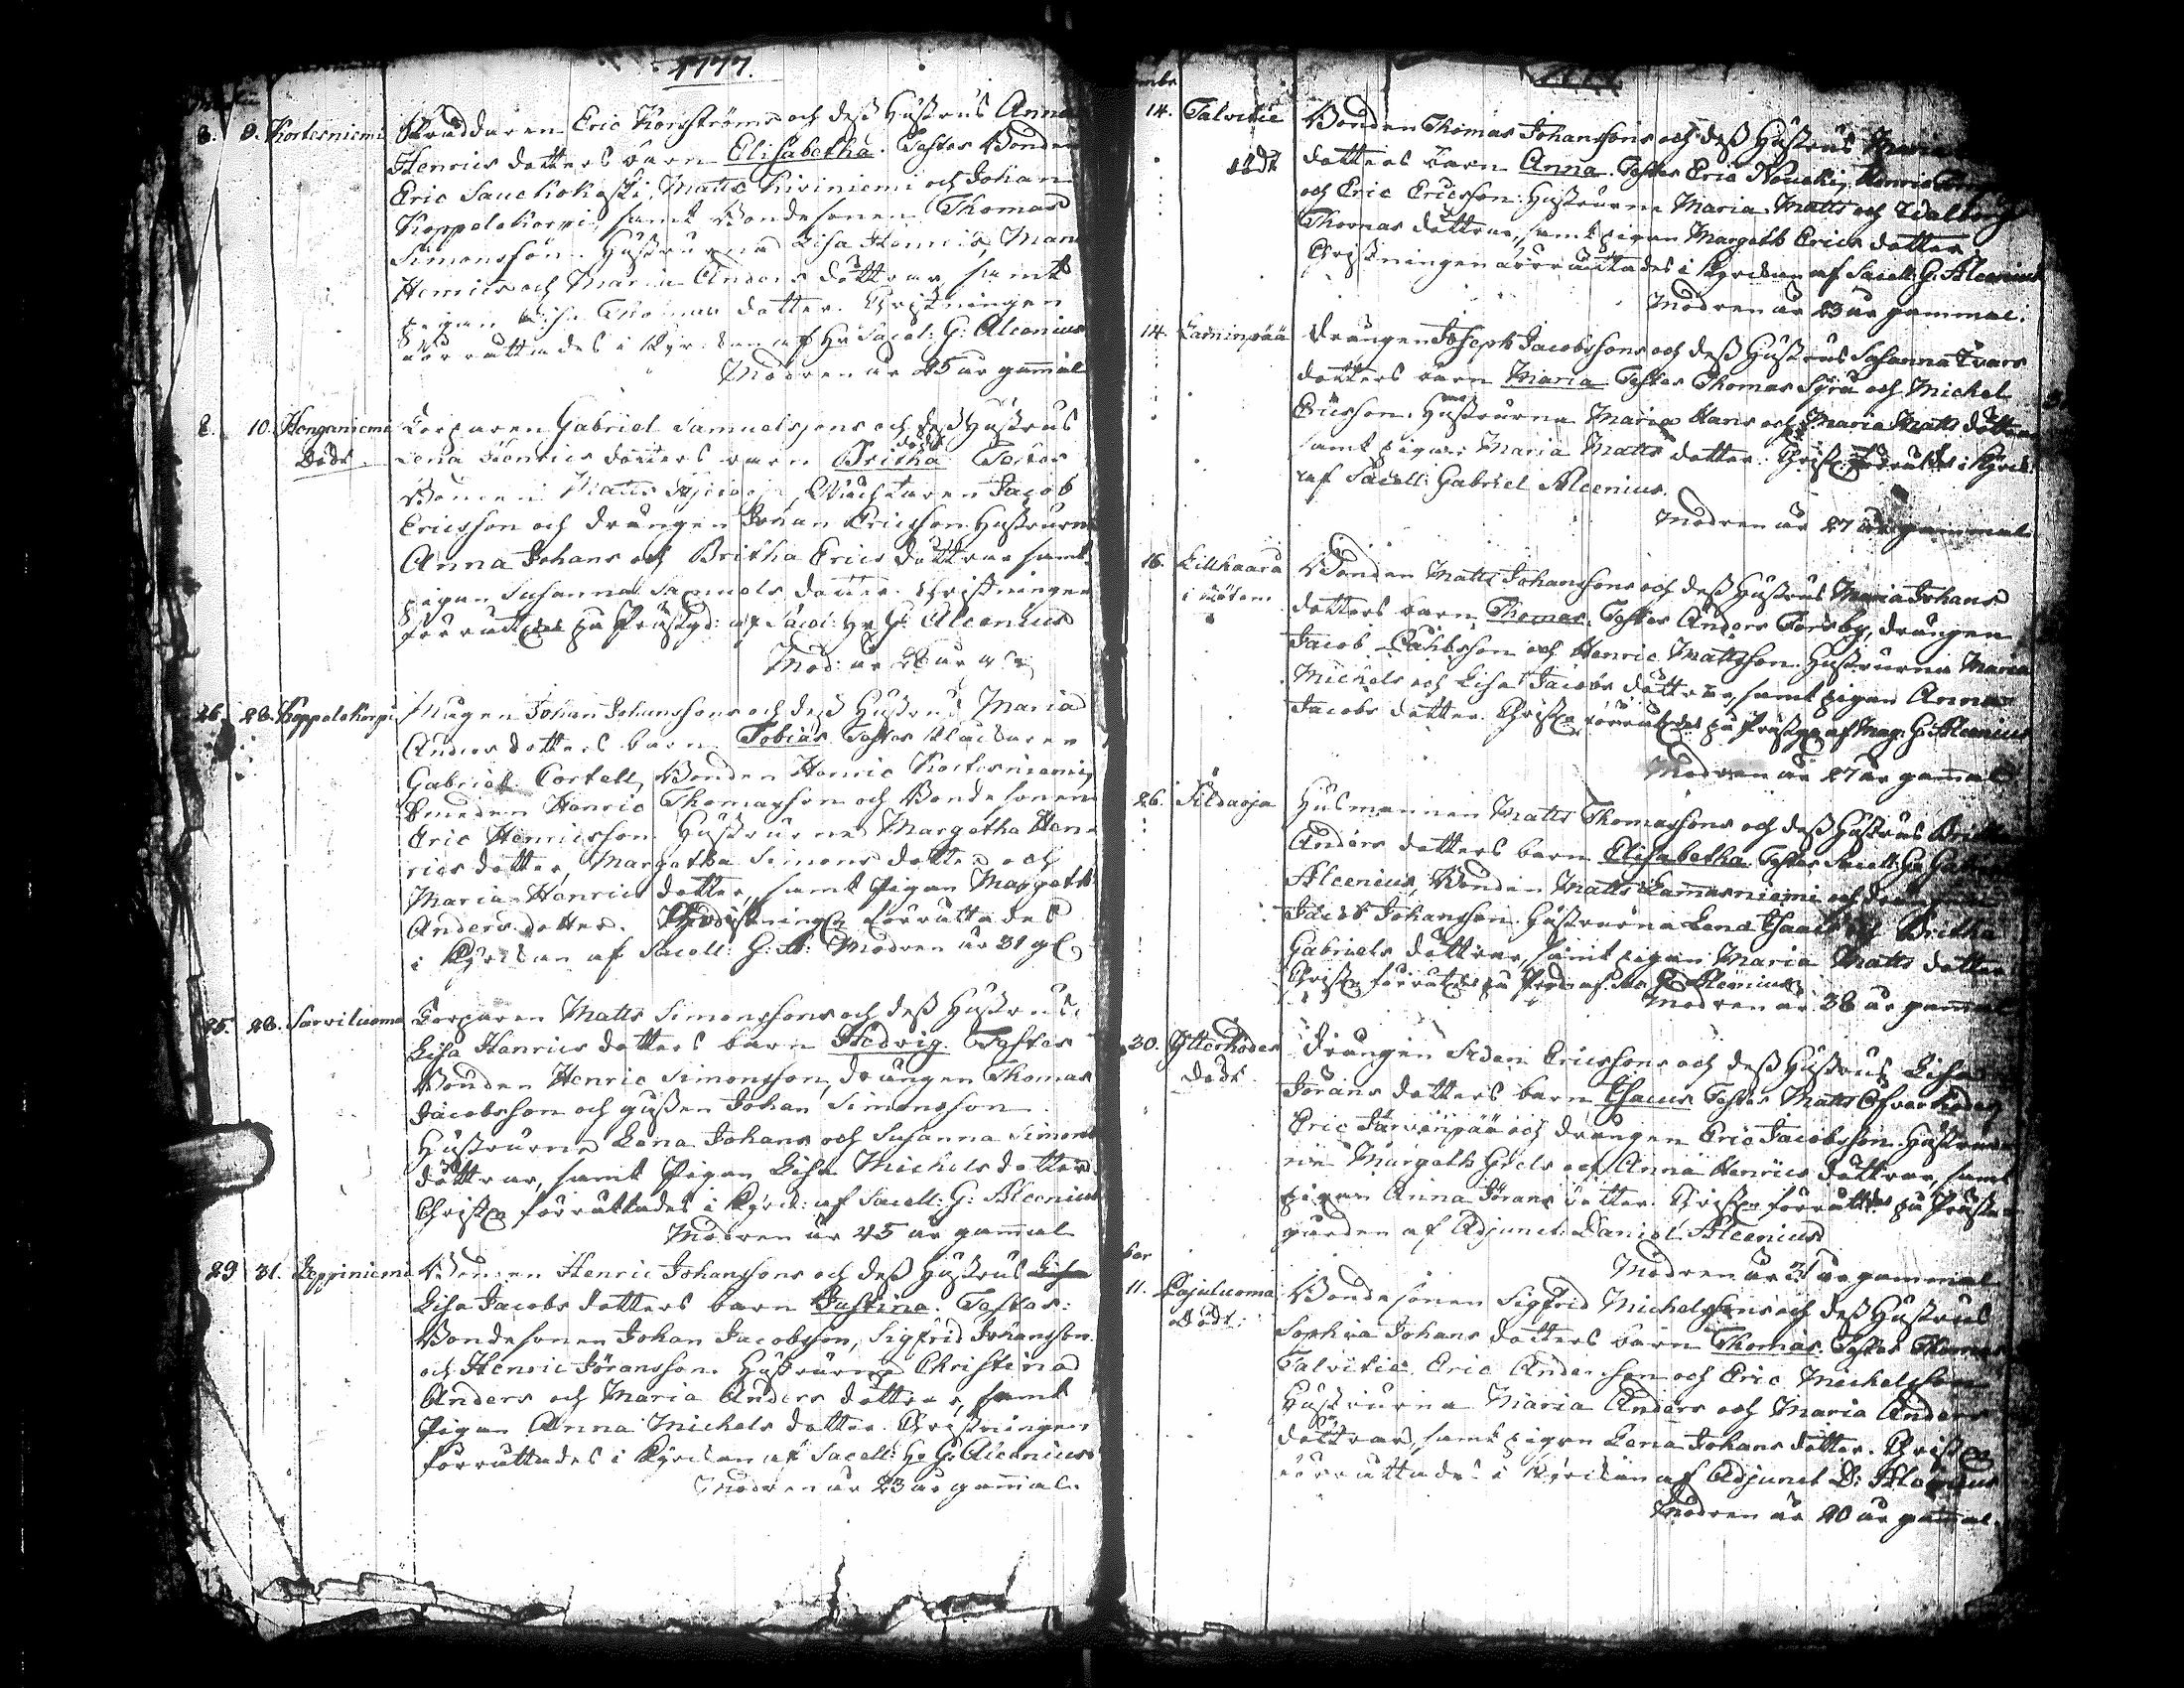 1777.
8. 9. Kortesniemi Skräddaren Eric Korsströms och dess Hustrus Anna
Henrics dotters barn Elisabetha. Testes Bonden
Eric Sauckokoski, Matts Kiviniemi och Johan
Koppelokorpi, samt Bondesonen Thomas
Simonsson. Hustrurna Lisa Henrics, Maria
Henrics och Maria Anders döttrar, samt
pigan Lisa Thomas dotter. Christningen
förrättades i Kyrckan af Hr Sacel: G: Alcenius
Modren är 25 år gammal
8. 10. Honganiemi Torparen Gabriel Samuelssons och dess Hustrus
Död. Lena Henrics dotters barn Britha död Testes
Bonden Matts, Wäcktaren Jacob
Ericsson och drängen Johan Ericsson. Hustrurna
Anna Johans och Britha Erics döttrar samt
pigan Susanna Samuels dotter. Christningen
förrättades på Prästgd: af Sacel: Hr G: Alcenius
Mod: är år
26. 28. Koppelokorpi Mågen Johan Johanssons och dess Hustrus Maria
Anders dotters barn Tobias. Testes Klockaren
Gabriel Cortell, Bonden Henric Kortesniemi,
Smeden Henric Thomasson och Bondesonen
Eric Henricsson. Hustrurna Margetha Hen-
rics dotter, Margetha Simons dotter och
Maria Henrics dotter, samt Pigan Margeth
Anders dotter. Christningen förrättades
i Kyrckan af Sacell: G: A: Modren är 31 g
25. 28. Sarviluoma Torparen Matts Simonssons och dess Hustrus
Lisa Henrics dotters barn Hedvig. Testes
Bonden Henric Simonsson, drängen Thomas
Jacobsson och gossen Johan Simonsson
Hustrurna Lena Johans och Susanna Simons
döttrar, samt Pigan Lisa Michels dotter
Christn förrättades i Kyrck: af Sacell: G: Alcenius
Modren är 25 år gammal
29 31. Leppiniemi Bonden Henric Johanssons och dess Hustrus Lisa
Lisa Jacobs dotters barn Justina. Testes:
Bondesonen Johan Jacobsson, Sigfrid Johansson
och Henric Jöransson. Hustrurna Christina
Anders och Maria Anders döttrar, samt
Pigan Anna Michels dotter. Christningen
förrättades i Kyrckan af Sacell: Hr G: Alcenius
Modren är 23 år gammal.
1777.
14. Talvitie Bonden Thomas Johanssons och dess Hustrus Maria
död dotters barn Anna. Testes Eric Henric
och Eric Ericsson. Hustrurna Maria Matts och Walborg
Thomas döttrar, samt pigan Margeth Erics dotter
Christningen förrättades i Kyrckan af Sacell: G. Alcenius
Modren är 23 år gammal.
14. Laminpää Drängen Joseph Jacobssons och dess Hustrus Susanna Ivars
dotters barn Maria Testes Thomas Syrä och Michel
Ericsson. Hustrurna Maria Hans och Maria Matts döttrar
samt pigan Maria Matts dotter. Christn förrättades i Kyrck:
af Sacell: Gabriel Alcenius.
Modren är 27 år gammal.
16. Lillkaara Bonden Matts Johanssons och dess Hustrus Maria Johans
dotters barn Thomas. Testes Anders Forsby, drängen
Jacob och Henric Mattsson. Hustrurna Maria
Michels och Lisa Jacobs döttrar, samt pigan Anna
Jacobs dotter. Christn förrättades på Prästgn af Mag: G: Alcenius
Modren är 27 år gammal
26. Sildaoja Husmannen Matts Thomassons och dess Hustrus Britha
Anders dotters barn Elisabetha. Testes Sacell: Hr Gabriel
Alcenius, Bonden Matts Lamasniemi och drängen
Jacob Johansson. Hustrurna Lena Isaacs och Britha
Gabriels döttrar, samt pigan Maria Matts dotter
Christn förrättades på af G Alcenius
Modren är 38 år gammal
30. Ytterkoden Drängen Ericssons och dess Hustrus Lisa
Död. Jörans dotters barn Isacus Testes Matts Öfverkoden
Eric Järvenpää och drängen Eric Jacobsson. Hustrur-
na Margeth Giels och Anna Henrics döttrar, samt
pigan Anna Jörans dotter. Christn förrättades på Präst-
gården af Adjunct: Daniel Alcenius
Modren är 31 år gammal
ber
11. Pajuluoma Bondesonen Sigfrid Michelssons och dess Hustrus
Död. Sophia Johans dotters barn Thomas. Testes Thomas
Talvitie, Eric Andersson och Eric Michelsson
Hustrurna Maria Anders och Maria Anders
döttrar, samt pigan Lena Johans dotter. Christn
förrättades i Kyrckan af Adjunct D: Alcenius
Modren är 20 år gammal.